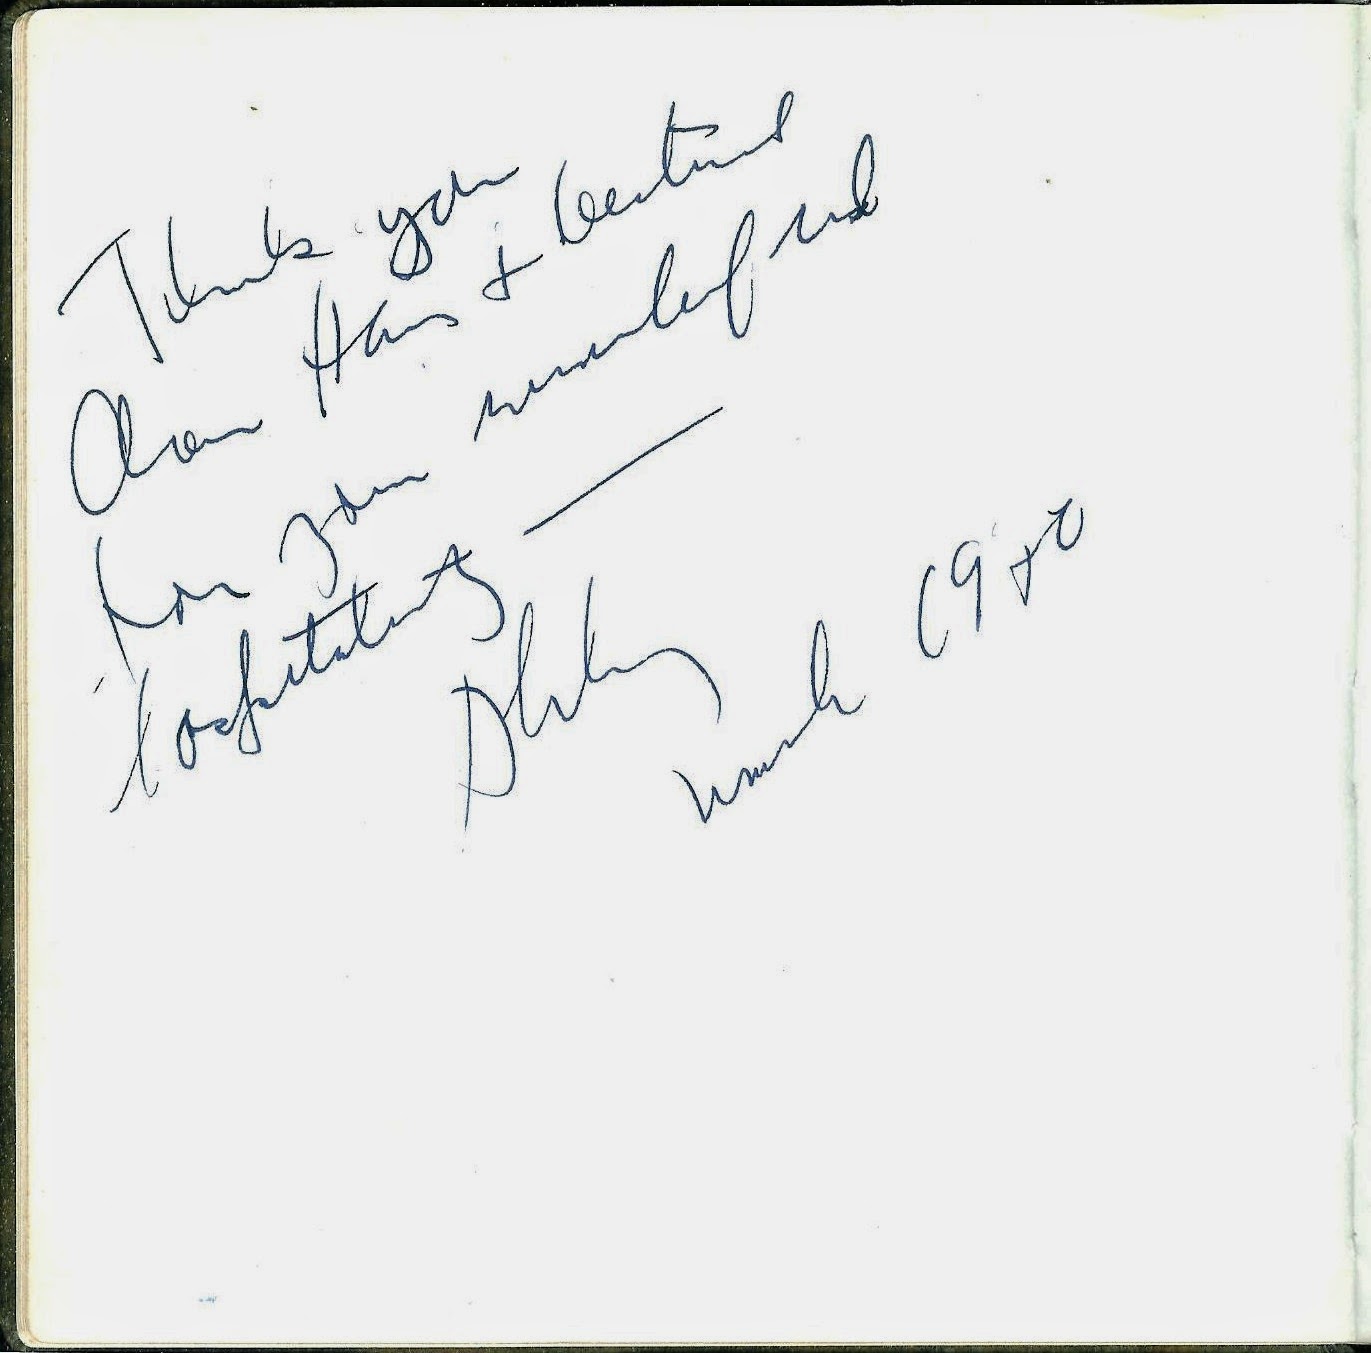 Thank you
dear Hans & Gertrud
for your wonderful
hospitality —
March 1980